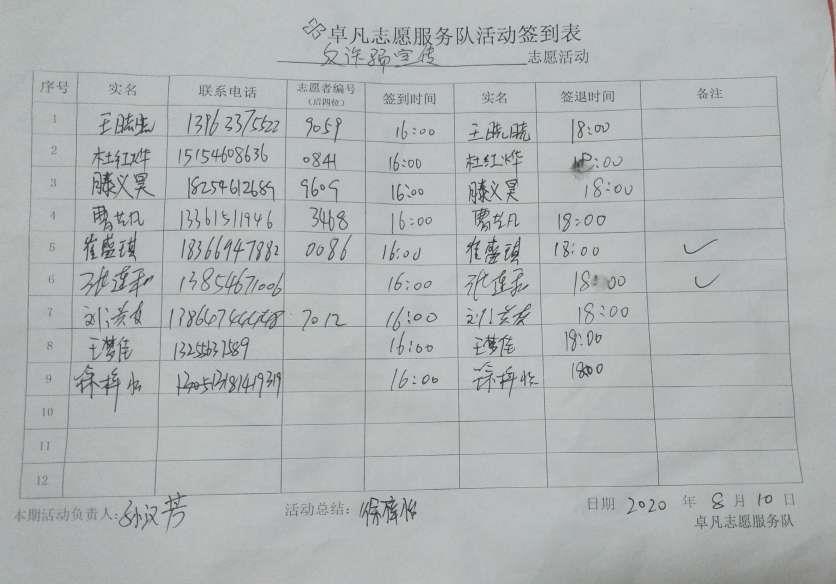 卓凡志愿服务队活动签到表
反诈骗宣传 志愿活动
序号 实名 联系电话 志愿者编号(后四位) 签到时间 实名 签退时间 备注
1 王晓晓 13963375522 9059 16:00 王晓晓 18:00
2 杜红烨 15154608636 0841 16:00 杜红烨 18:00
3 滕义昊 18254612689 9609 16:00 滕义昊 18:00
4 曹梦凡 13361511946 3468 16:00 曹梦凡 18:00
5 崔盛琪 18366947882 0086 16:00 崔盛琪 18:00 ✓
6 张连 13854671006 16:00 张连 18:00 ✓
7 刘 友 7012 16:00 刘 友 18:00
8 王梦佳 16:00 王梦佳 18:00
9 徐梓怡 16:00 徐梓怡 18:00
10
11
12
本期活动负责人:孙汉芳 活动总结:徐梓怡 日期 2020 年 8 月 10 日
卓凡志愿服务队